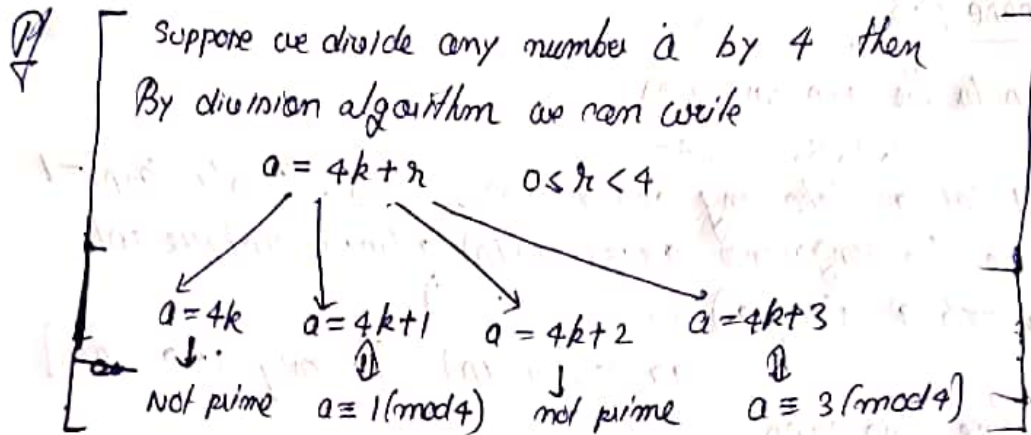 Suppose we divide any number a by 4 then
By division algorithm we can write
a = 4k + r 0 ≤ r < 4
a = 4k a = 4k+1 a = 4k+2 a = 4k+3
Not prime a ≡ 1 (mod 4) not prime a ≡ 3 (mod 4)